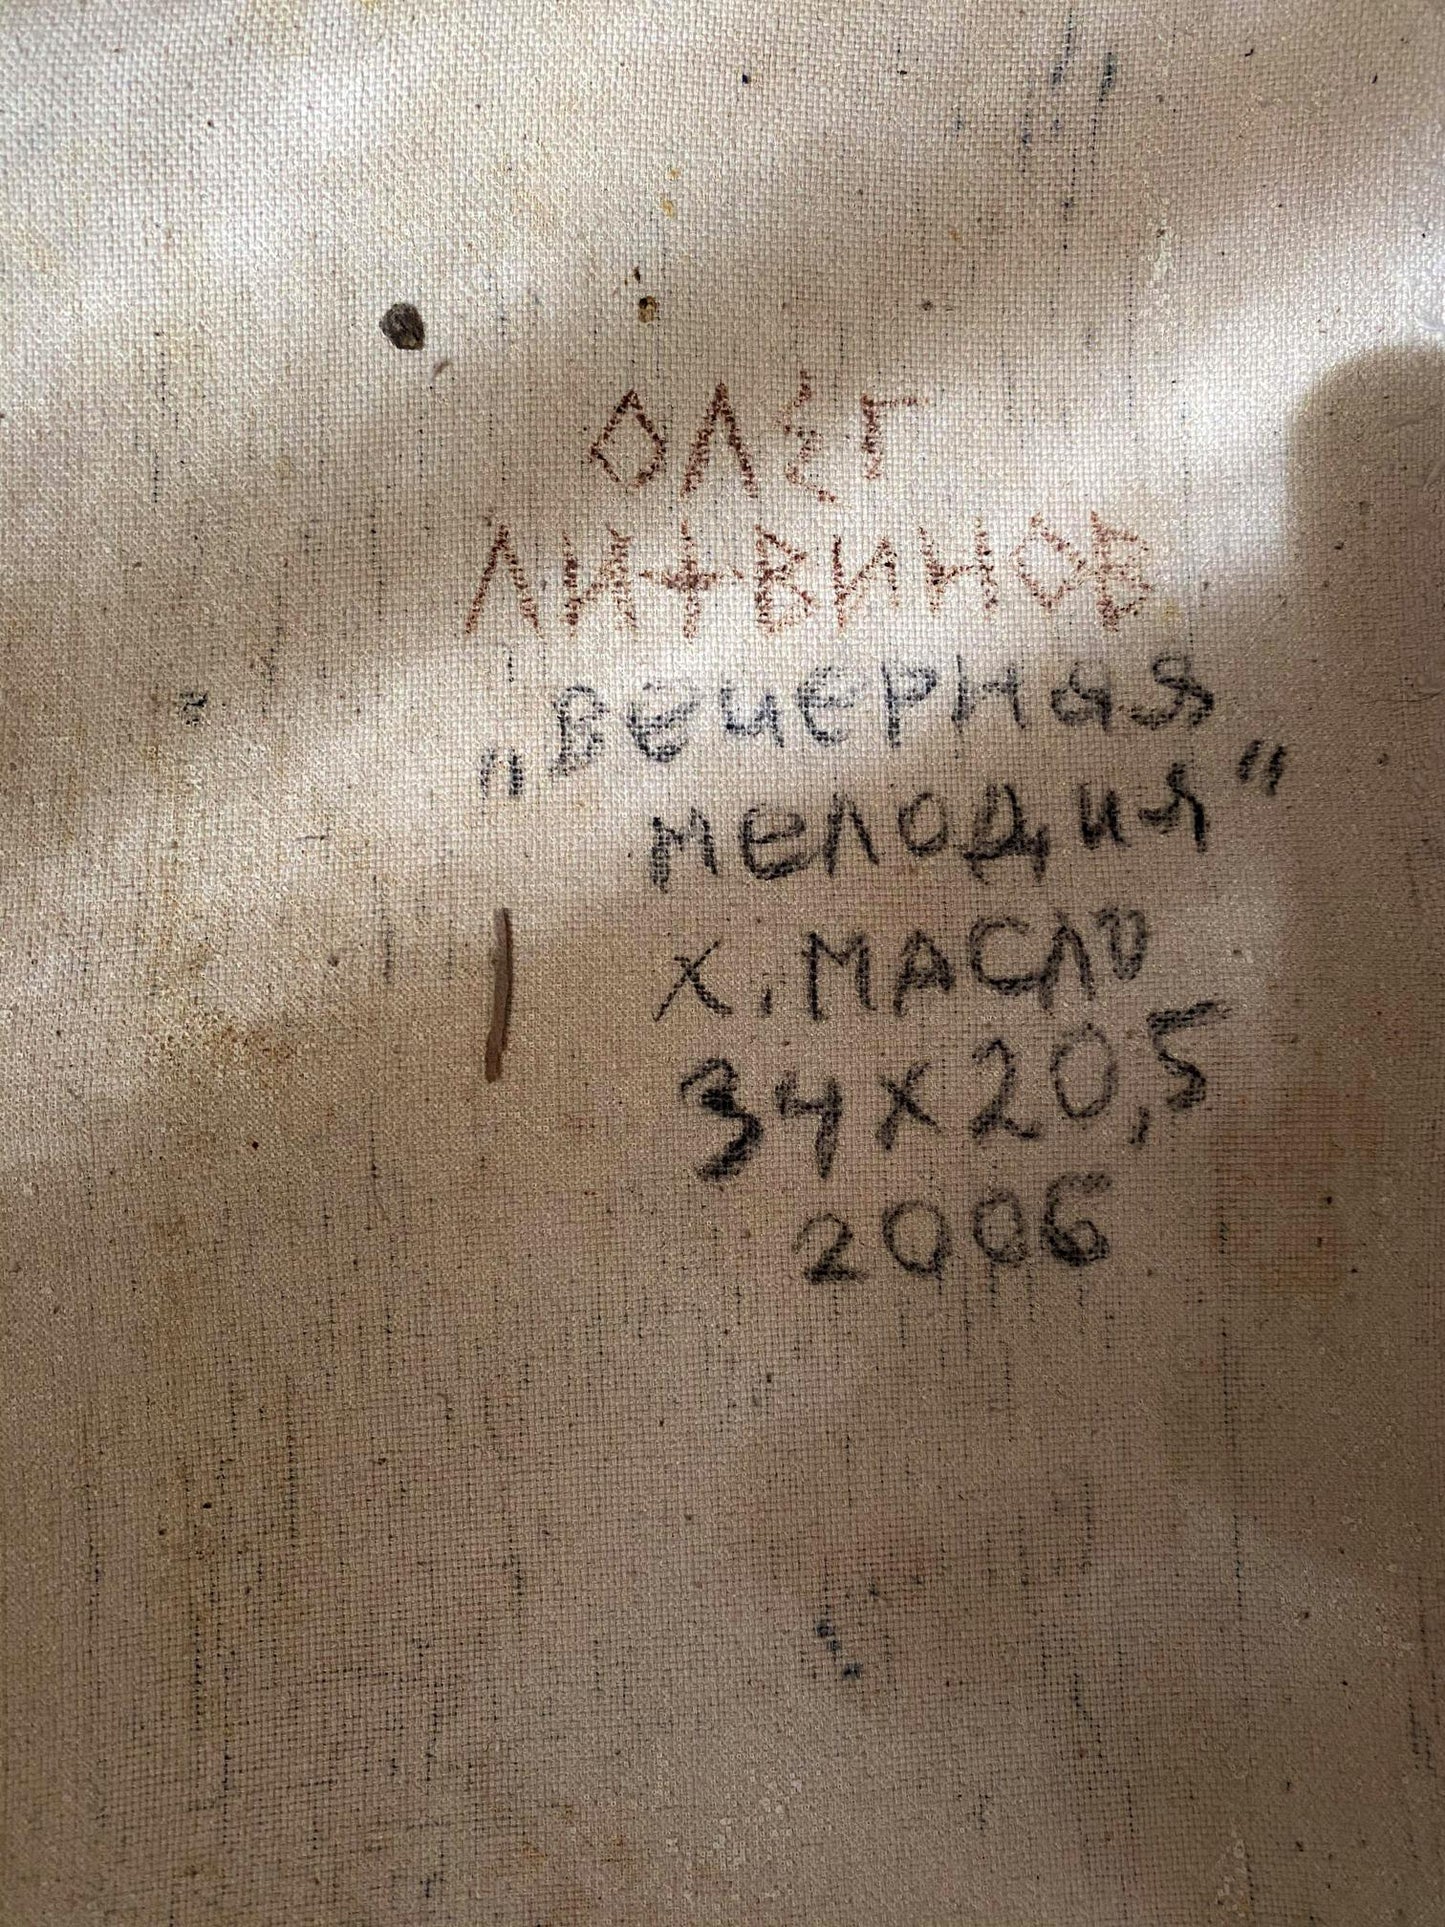 ОЛЕГ
ЛИТВИНОВ
„ВЕЧЕРНАЯ
МЕЛОДИЯ"
Х. МАСЛО
34Х20,5
2006